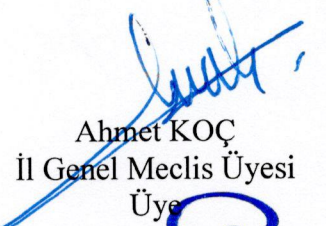 Ahmet KOÇ
İl Genel Meclis Üyesi
Üye